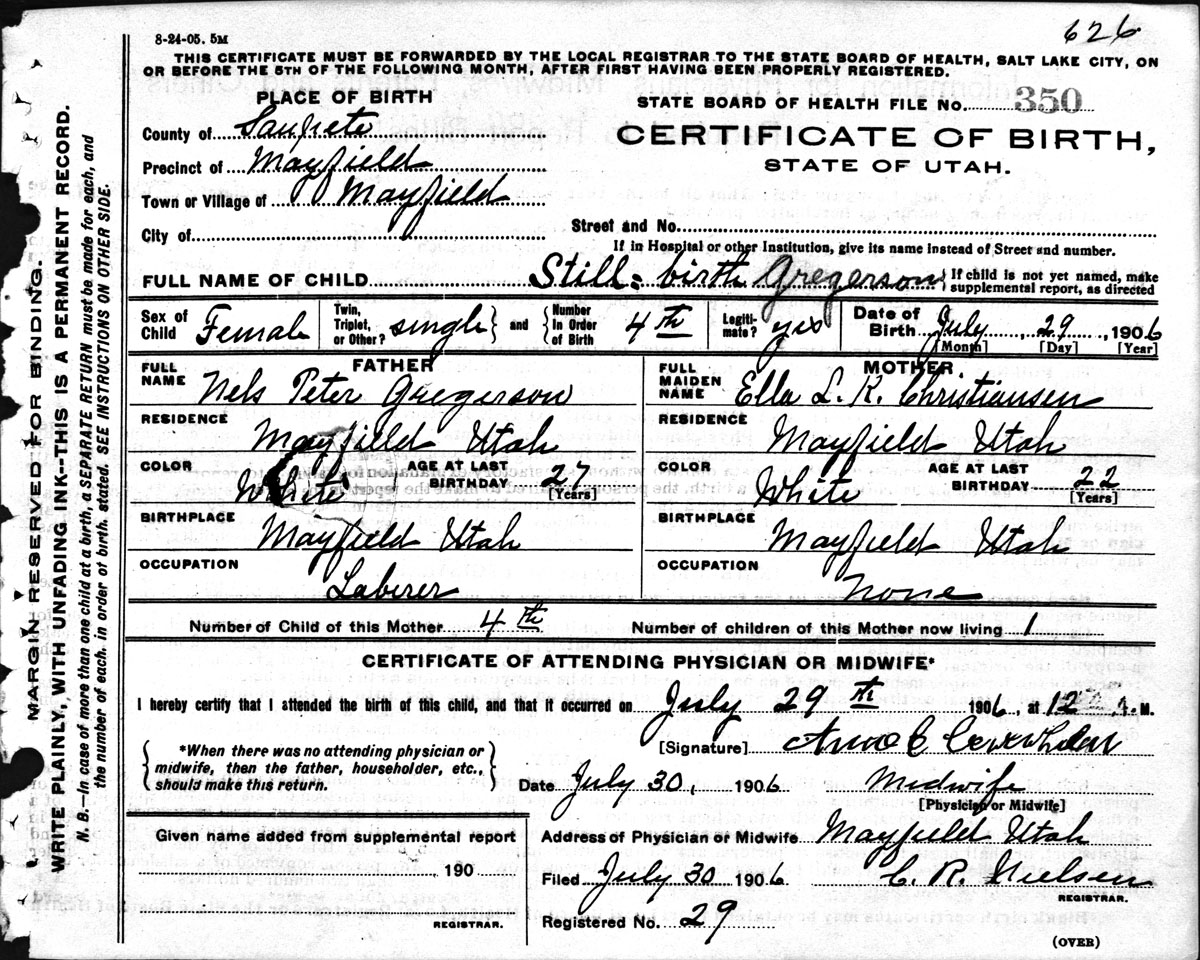 626
8-24-05. 5M
THIS CERTIFICATE MUST BE FORWARDED BY THE LOCAL REGISTRAR TO THE STATE BOARD OF HEALTH, SALT LAKE CITY, ON
OR BEFORE THE 5TH OF THE FOLLOWING MONTH, AFTER FIRST HAVING BEEN PROPERLY REGISTERED.
PLACE OF BIRTH
STATE BOARD OF HEALTH FILE No. 350
County of Sanpete
CERTIFICATE OF BIRTH,
Precinct of Mayfield
STATE OF UTAH.
Town or Village of Mayfield
City of
Street and No.
If in Hospital or other Institution, give its name instead of Street and number.
FULL NAME OF CHILD Still-birth Gregerson { If child is not yet named, make supplemental report, as directed
Sex of Child Female Twin, Triplet, or Other? single } and { Number In Order of Birth 4th Legitimate? yes Date of Birth July 29, 1906
[Month] [Day] [Year]
FATHER
MOTHER.
FULL NAME Nels Peter Gregerson
FULL MAIDEN NAME Ella L. K. Christiansen
RESIDENCE
Mayfield Utah
RESIDENCE
Mayfield Utah
COLOR White AGE AT LAST BIRTHDAY 27 [Years]
COLOR White AGE AT LAST BIRTHDAY 22 [Years]
BIRTHPLACE
Mayfield Utah
BIRTHPLACE
Mayfield Utah
OCCUPATION
Laberer
OCCUPATION
None
Number of Child of this Mother 4th
Number of children of this Mother now living 1
CERTIFICATE OF ATTENDING PHYSICIAN OR MIDWIFE*
I hereby certify that I attended the birth of this child, and that it occurred on July 29th 1906, at 12 M.
{ *When there was no attending physician or midwife, then the father, householder, etc., should make this return. }
[Signature]
Date July 30, 1906
Midwife
[Physician or Midwife]
Given name added from supplemental report
190
REGISTRAR.
Address of Physician or Midwife Mayfield Utah
Filed July 30 1906 C. R. Nielsen
REGISTRAR.
Registered No. 29
(OVER)
MARGIN RESERVED FOR BINDING.
WRITE PLAINLY, WITH UNFADING INK--THIS IS A PERMANENT RECORD.
N. B.--In case of more than one child at a birth, a SEPARATE RETURN must be made for each, and
the number of each, in order of birth, stated. SEE INSTRUCTIONS ON OTHER SIDE.